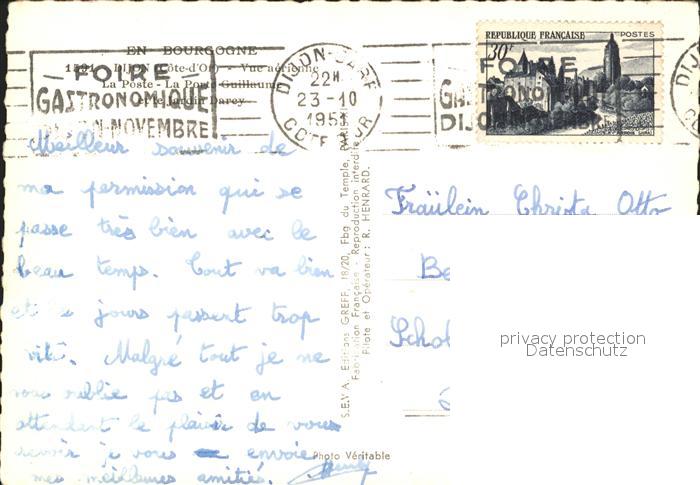 EN BOURGOGNE
1501 - DIJON (Côte-d'Or) - Vue aérienne
La Poste - La Porte Guillaume
et le Jardin Darcy
FOIRE
GASTRONOMIQUE
DIJON-NOVEMBRE
DIJON-GARE
22H
23-10
1951
COTE D'OR
REPUBLIQUE FRANÇAISE POSTES
30F
FOIRE
GASTRONOMIQUE
DIJON-NOVEMBRE
Meilleur souvenir de
ma permission qui se
passe très bien avec le
beau temps. Tout va bien
et les jours passent trop
vite. Malgré tout je ne
vous oublie pas et en
attendant le plaisir de vous
revoir je vous envoie
mes meilleures amitiés.
S.E.V.A. Editions GREFF, 18/20, Fbg du Temple, PARIS
Fabrication Française - Reproduction interdite
Pilote et Opérateur : R. HENRARD.
Photo Véritable
Fräulein Christa Otto
Be
Schol
privacy protection
Datenschutz